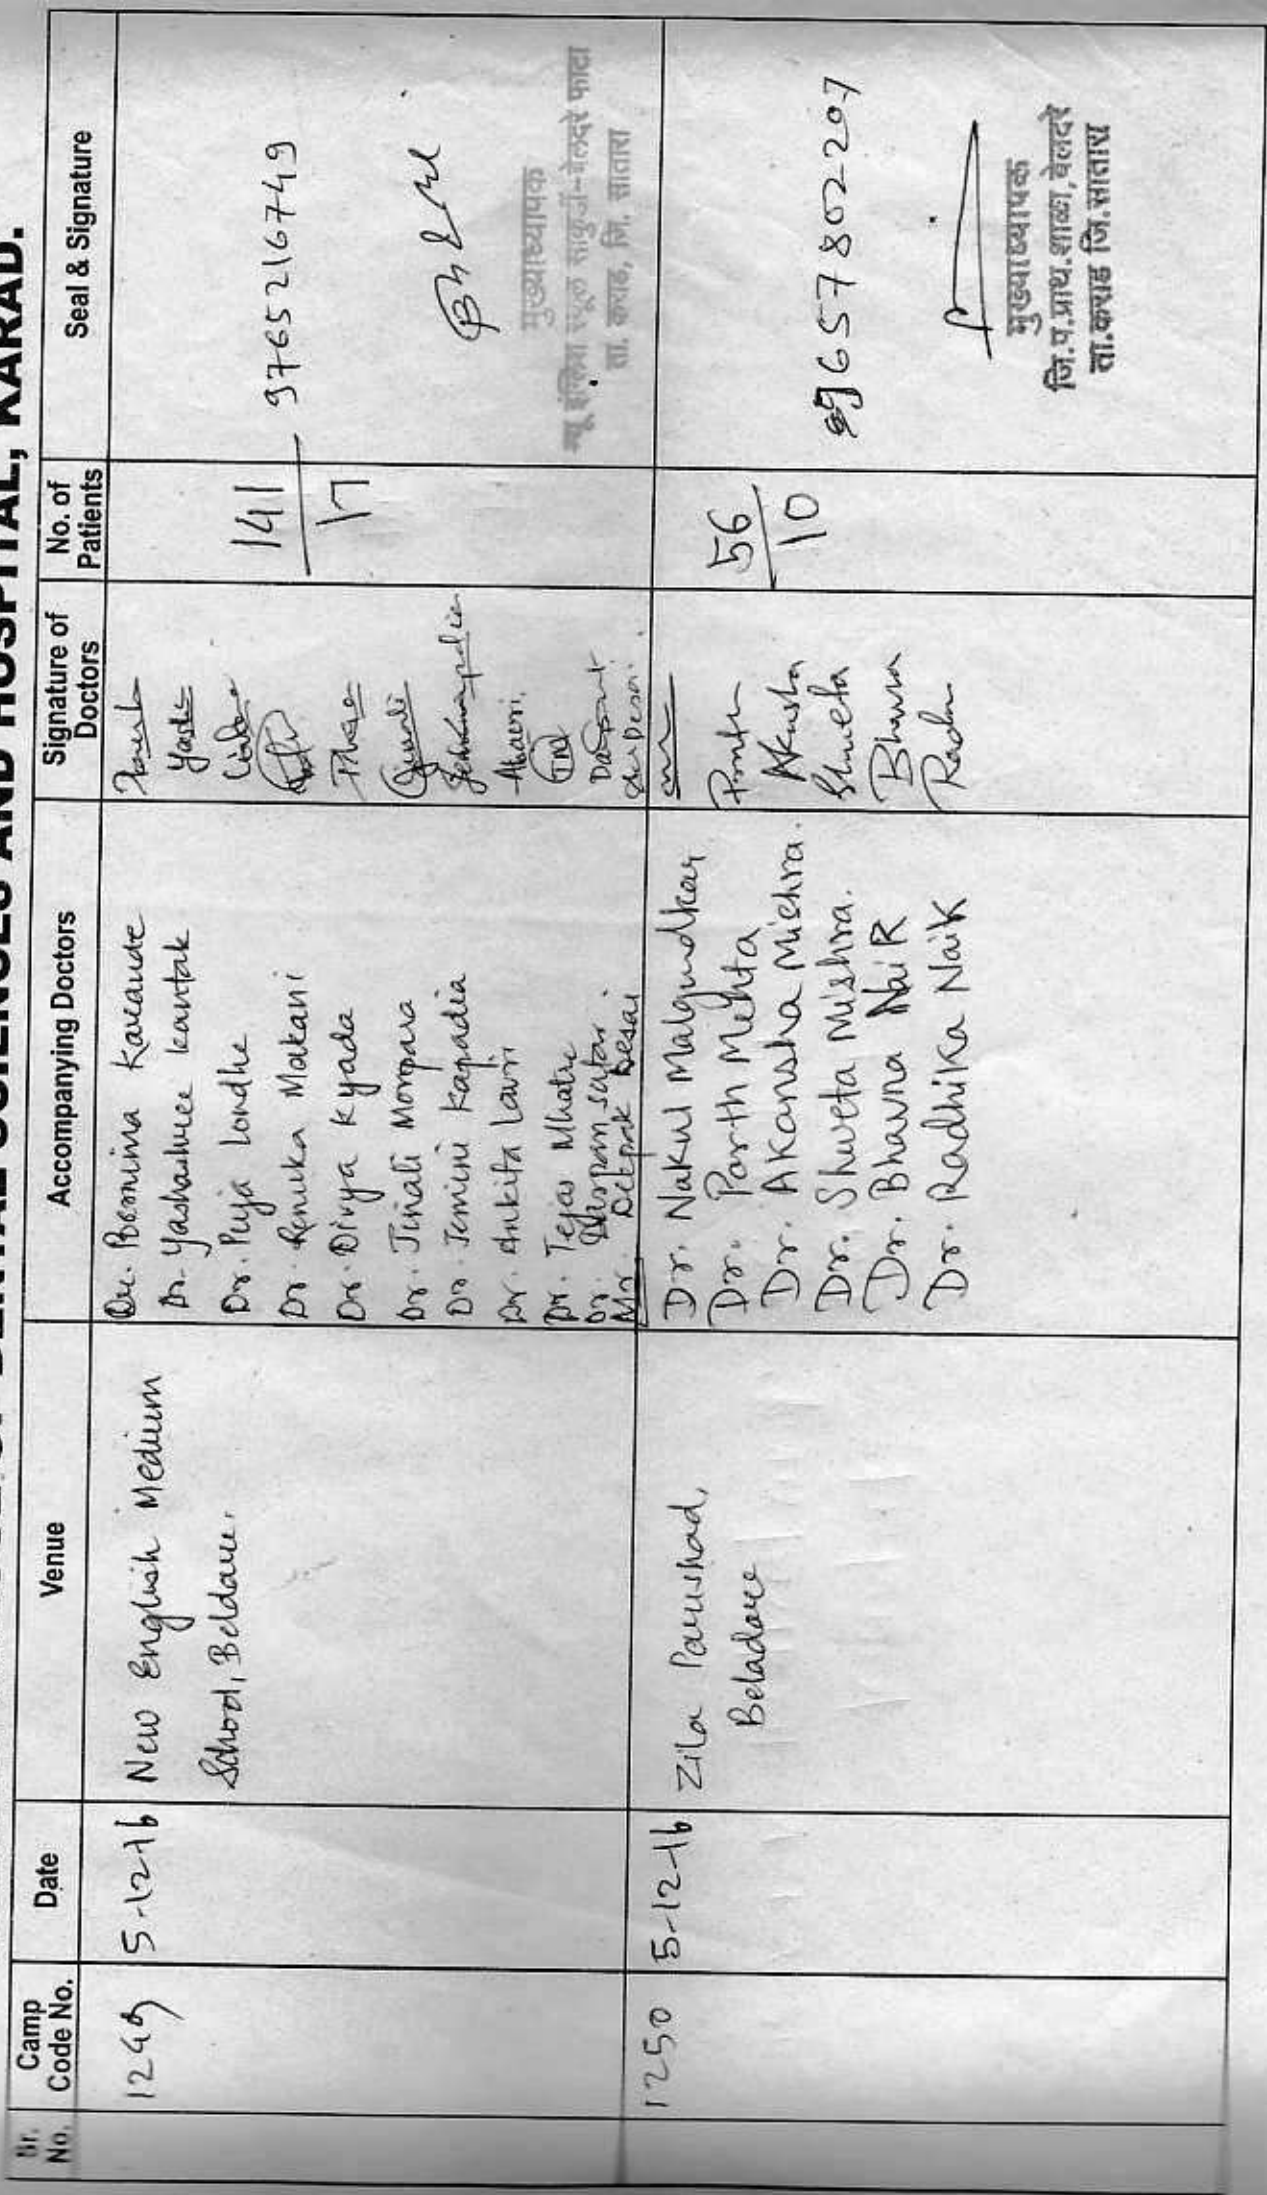 DENTAL SCIENCES AND HOSPITAL, KARAD.
Sr. No.
Camp Code No.
Date
Venue
Accompanying Doctors
Signature of Doctors
No. of Patients
Seal & Signature
1249
5-12-16
New English Medium
School, Beldare.
Dr. Poornima Karande
Dr. Yashashree Kantak
Dr. Puja Londhe
Dr. Renuka Makani
Dr. Divya Kyada
Dr. Jinali Morpara
Dr. Jemini Kapadia
Dr. Ankita Lavri
Dr. Tejas Mhatre
Dr. Darpan Sutar
Mr. Deepak Desai
Yash
TM
141
17
9765216749
मुख्याध्यापक
ता. कराड, जि. सातारा
1250
5-12-16
Zila Parishad,
Beladare
Dr. Nakul Malgundkar
Dr. Parth Mehta
Dr. Akansha Mishra.
Dr. Shweta Mishra.
Dr. Bhavna Nair
Dr. Radhika Naik
Akansha
Shweta
Bhavna
56
10
9657802207
मुख्याध्यापक
जि.प.प्राथ.शाळा, बेलदरे
ता.कराड जि.सातारा